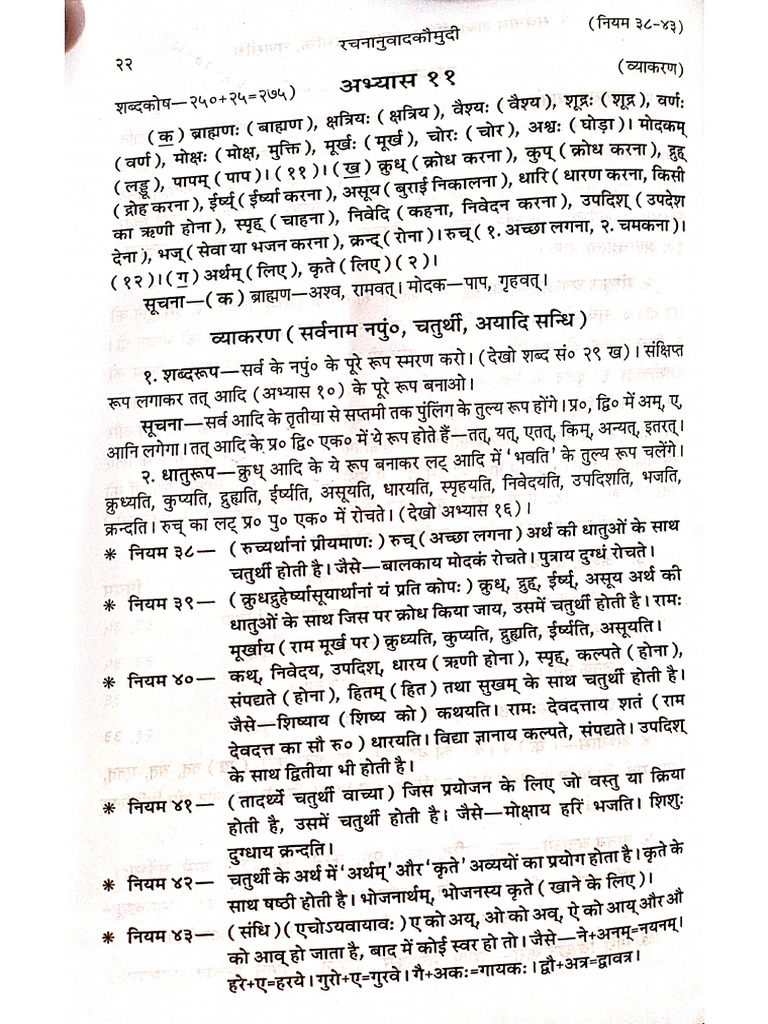 (नियम ३८-४३)
रचनानुवादकौमुदी
२२
(व्याकरण)
अभ्यास ११
शब्दकोष—२५०+२५=२७५)
(क) ब्राह्मणः (बाह्मण), क्षत्रियः (क्षत्रिय), वैश्यः (वैश्य), शूद्रः (शूद्र), वर्णः
(वर्ण), मोक्षः (मोक्ष, मुक्ति), मूर्खः (मूर्ख), चोरः (चोर), अश्वः (घोड़ा)। मोदकम्
(लड्डू), पापम् (पाप)। (११)। (ख) क्रुध् (क्रोध करना), कुप् (क्रोध करना), द्रुह्
(द्रोह करना), ईर्ष्य् (ईर्ष्या करना), असूय (बुराई निकालना), धारि (धारण करना, किसी
का ऋणी होना), स्पृह् (चाहना), निवेदि (कहना, निवेदन करना), उपदिश् (उपदेश
देना), भज् (सेवा या भजन करना), क्रन्द् (रोना)। रुच् (१. अच्छा लगना, २. चमकना)।
(१२)। (ग) अर्थम् (लिए), कृते (लिए) (२)।
सूचना—(क) ब्राह्मण—अश्व, रामवत्। मोदक—पाप, गृहवत्।
व्याकरण (सर्वनाम नपुं०, चतुर्थी, अयादि सन्धि)
१. शब्दरूप—सर्व के नपुं० के पूरे रूप स्मरण करो। (देखो शब्द सं० २९ ख)। संक्षिप्त
रूप लगाकर तत् आदि (अभ्यास १०) के पूरे रूप बनाओ।
सूचना—सर्व आदि के तृतीया से सप्तमी तक पुंलिंग के तुल्य रूप होंगे। प्र०, द्वि० में अम्, ए,
आनि लगेगा। तत् आदि के प्र० द्वि० एक० में ये रूप होते हैं—तत्, यत्, एतत्, किम्, अन्यत्, इतरत्।
२. धातुरूप—क्रुध् आदि के ये रूप बनाकर लट् आदि में 'भवति' के तुल्य रूप चलेंगे।
क्रुध्यति, कुप्यति, द्रुह्यति, ईर्ष्यति, असूयति, धारयति, स्पृहयति, निवेदयति, उपदिशति, भजति,
क्रन्दति। रुच् का लट् प्र० पु० एक० में रोचते। (देखो अभ्यास १६)।
* नियम ३८— (रुच्यर्थानां प्रीयमाणः) रुच् (अच्छा लगना) अर्थ की धातुओं के साथ
चतुर्थी होती है। जैसे—बालकाय मोदकं रोचते। पुत्राय दुग्धं रोचते।
* नियम ३९— (क्रुधद्रुहेर्ष्यासूयार्थानां यं प्रति कोपः) क्रुध्, द्रुह्, ईर्ष्य्, असूय अर्थ की
धातुओं के साथ जिस पर क्रोध किया जाय, उसमें चतुर्थी होती है। रामः
मूर्खाय (राम मूर्ख पर) क्रुध्यति, कुप्यति, द्रुह्यति, ईर्ष्यति, असूयति।
* नियम ४०— कथ्, निवेदय, उपदिश्, धारय (ऋणी होना), स्पृह्, कल्पते (होना),
संपद्यते (होना), हितम् (हित) तथा सुखम् के साथ चतुर्थी होती है।
जैसे—शिष्याय (शिष्य को) कथयति। रामः देवदत्ताय शतं (राम
देवदत्त का सौ रु०) धारयति। विद्या ज्ञानाय कल्पते, संपद्यते। उपदिश्
के साथ द्वितीया भी होती है।
* नियम ४१— (तादर्थ्ये चतुर्थी वाच्या) जिस प्रयोजन के लिए जो वस्तु या क्रिया
होती है, उसमें चतुर्थी होती है। जैसे—मोक्षाय हरिं भजति। शिशुः
दुग्धाय क्रन्दति।
* नियम ४२— चतुर्थी के अर्थ में 'अर्थम्' और 'कृते' अव्ययों का प्रयोग होता है। कृते के
साथ षष्ठी होती है। भोजनार्थम्, भोजनस्य कृते (खाने के लिए)।
* नियम ४३— (संधि) (एचोऽयवायावः) ए को अय्, ओ को अव्, ऐ को आय् और औ
को आव् हो जाता है, बाद में कोई स्वर हो तो। जैसे—ने+अनम्=नयनम्।
हरे+ए=हरये। गुरो+ए=गुरवे। गै+अकः=गायकः। द्वौ+अत्र=द्वावत्र।